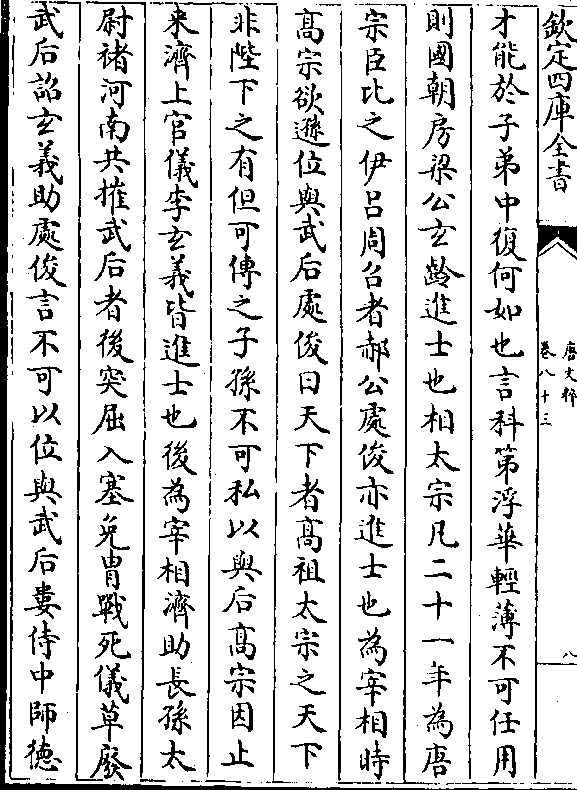 欽定四庫全書
唐文粹
卷八十三
八
才能於子弟中復何如也言科第浮華輕薄不可任用
則國朝房梁公玄齡進士也相太宗凡二十一年為唐
宗臣比之伊吕周召者郝公處俊亦進士也為宰相時
髙宗欲遜位與武后處俊曰天下者髙祖太宗之天下
非陛下之有但可傳之子孫不可私以與后髙宗因止
来濟上官儀李玄義皆進士也後為宰相濟助長孫太
尉禇河南共摧武后者後突厥入塞免胄戰死儀草廢
武后詔玄義助處俊言不可以位與武后婁侍中師徳